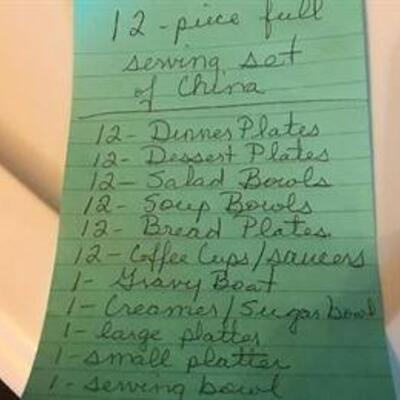 12-piece full
serving set
of China
12- Dinner Plates
12- Dessert Plates
12- Salad Bowls
12- Soup Bowls
12- Bread Plates
12- Coffee Cups/saucers
1- Gravy Boat
1- Creamer/Sugar bowl
1- large platter
1- small platter
1- serving bowl